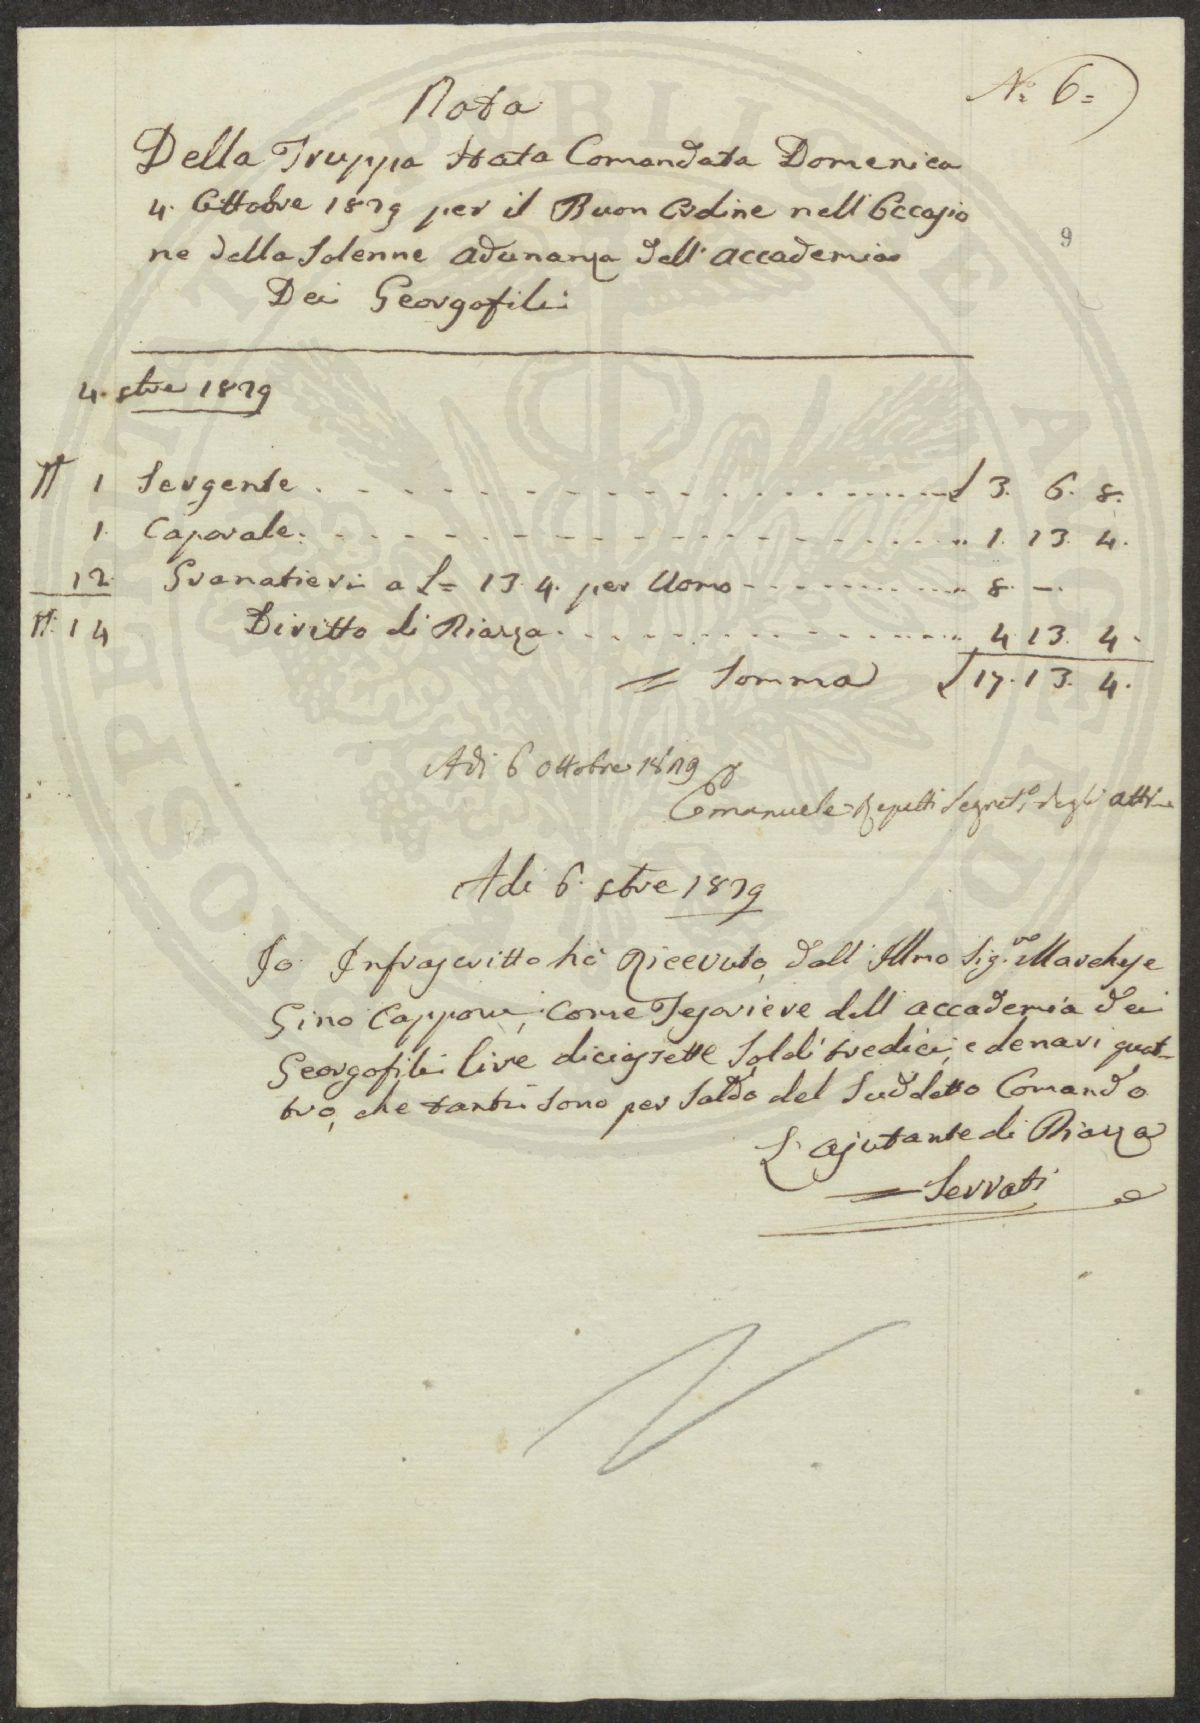 N.º 6=
Nota
Della Truppa Stata Comandata Domenica
4. Ottobre 1829 per il Buon Ordine nell'Occasio
9
ne della Solenne adunanza dell'accademia
Dei Georgofili
4. 8bre 1829
N 1 Sergente £ 3. 6. 8.
1. Caporale: " 1. 13. 4.
12. Granatieri a £= 13. 4. per Uomo " 8. —.
N. 14 Diritto di Piazza " 4. 13. 4.
= Somma £ 17. 13. 4.
Adì 6 Ottobre 1829
Emanuele Repetti Segret.o degli atti
Adi 6. 8bre 1829
Io Infrascritto hò Ricevuto, dall'Illmo Sig.re Marchese
Gino Capponi, Come Tesoriere dell accademia dei
Georgofili lire diciasette, Soldi tredici, e denari quat-
tro, che tanti sono per Saldo del Suddetto Comando
L'ajutante di Piazza
= Serrati
PVBLICAE
PROSPERITATI
AVGENDAE